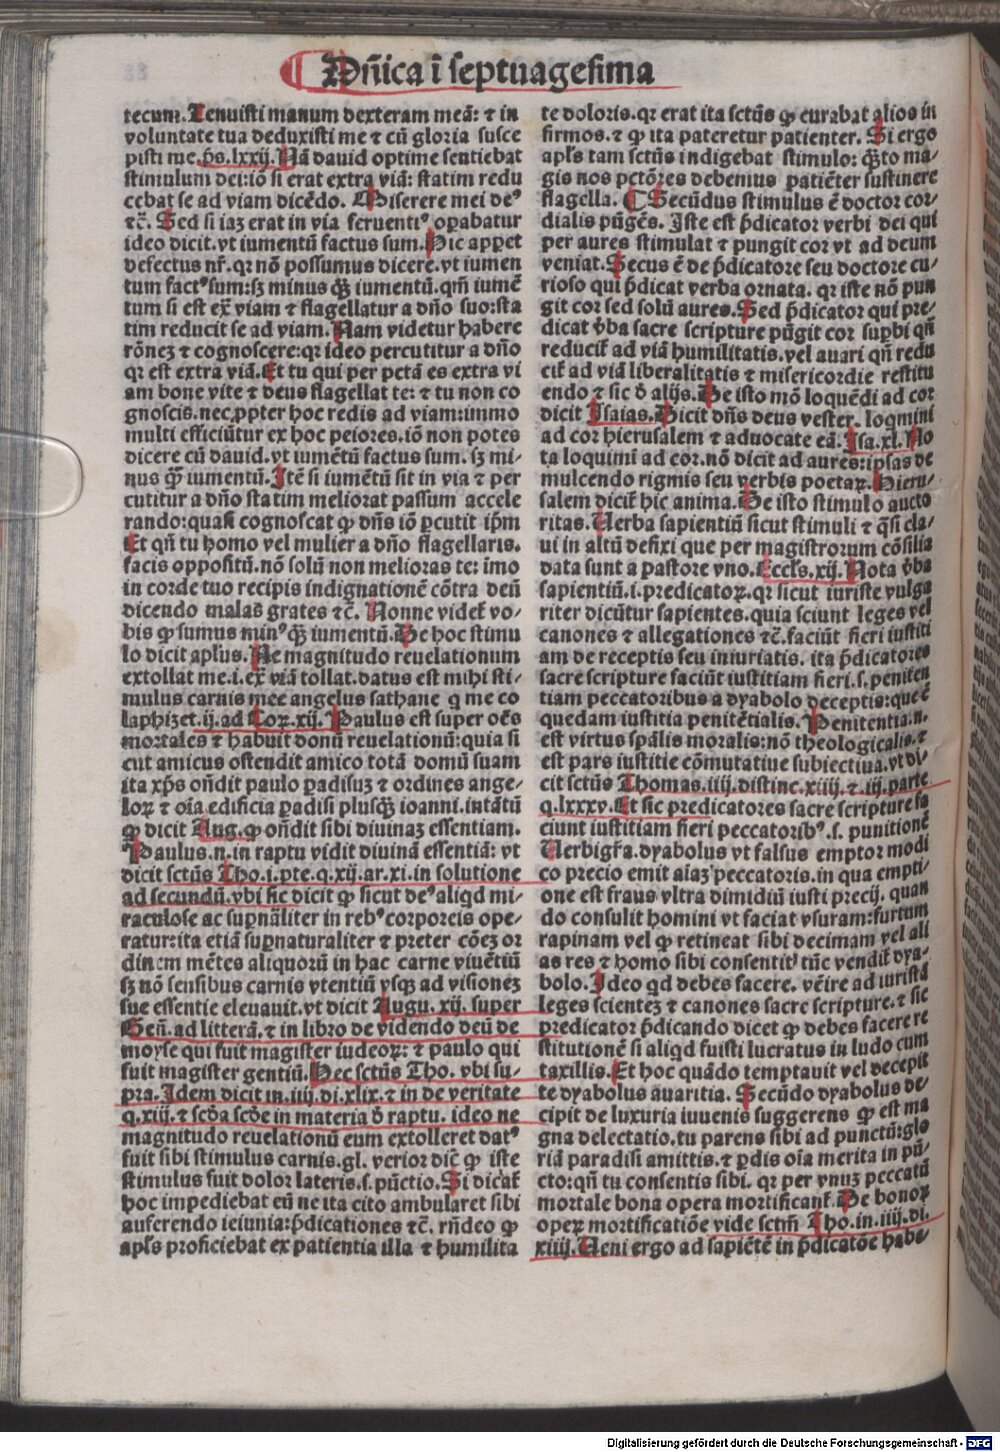 Dñica ĩ septuagesima
tecum. Tenuisti manum dexteram meã: ⁊ in
voluntate tua deduxisti me ⁊ cũ gloria susce
pisti me. p̃s. lxxij. Nã dauid optime sentiebat
stimulum dei: iõ si erat extra viã: statim redu
cebat se ad viam dicẽdo. Miserere mei deꝰ
⁊c̃. Sed si iaz erat in via feruentiꝰ oꝑabatur
ideo dicit. vt iumentũ factus sum. Hic apꝑet
defectus nr̃. qꝛ nõ possumus dicere. vt iumen
tum factꝰ sum: sꝫ minus q̃ꝫ iumentũ. qm̃ iumẽ
tum si est ex̃ viam ⁊ flagellatur a dño suo: sta
tim reducit se ad viam. Nam videtur habere
rõnez ⁊ cognoscere: qꝛ ideo percutitur a dño
qꝛ est extra viã. Et tu qui per pctã es extra vi
am bone vite ⁊ deus flagellat te: ⁊ tu non co
gnoscis. nec ꝓpter hoc redis ad viam: immo
multi efficiũtur ex hoc peiores. iõ non potes
dicere cũ dauid. vt iumẽtũ factus sum. sꝫ mi-
nus q̃ꝫ iumentũ. Itẽ si iumẽtũ sit in via ⁊ per
cutitur a dño statim meliorat passum accele
rando: quasi cognoscat ꝙ dñs iõ ꝑcutit ip̃m
Et qñ tu homo vel mulier a dño flagellaris.
facis oppositũ. nõ solũ non melioras te: imo
in corde tuo recipis indignationẽ cõtra deũ
dicendo malas grates ⁊c̃. Nonne videt̃ vo-
bis ꝙ sumus minꝰ q̃ꝫ iumentũ. De hoc stimu
lo dicit apl̃us. Ne magnitudo reuelationum
extollat me. i. ex̃ viã tollat. datus est mihi sti-
mulus carnis mee angelus sathane q̇ me co
laphizet. ij. ad Coꝝ. xij. Paulus est super oẽs
mortales ⁊ habuit donũ reuelationũ: quia si
cut amicus ostendit amico totã domũ suam
ita xp̃s oñdit paulo ꝑadisuꝫ ⁊ ordines ange-
loꝝ ⁊ oĩa edificia ꝑadisi plusq̃ꝫ ioanni. intãtũ
ꝙ dicit Aug. ꝙ oñdit sibi diuinaꝫ essentiam.
Paulus. n. in raptu vidit diuinã essentiã: vt
dicit sctũs Tho. i. pte. q. xij. ar. xi. in solutione
ad secundũ. vbi sic dicit ꝙ sicut deꝰ aliqd mi-
raculose ac suꝑnãliter in rebꝰ corporeis ope-
ratur: ita etiã suꝑnaturaliter ⁊ preter cõeꝫ or
dinem mẽtes aliquorũ in hac carne viuẽtiũ
sꝫ nõ sensibus carnis vtentiũ vsqꝫ ad visioneꝫ
sue essentie eleuauit. vt dicit Augu. xij. super
Geñ. ad litterã. ⁊ in libro de videndo deũ de
moyse qui fuit magister iudeoꝝ: ⁊ paulo qui
fuit magister gentiũ. Hec sctũs Tho. vbi su-
pra. Idem dicit in. iiij. di. xlix. ⁊ in de veritate
q. xiij. ⁊ scd̃a scd̃e in materia d̃ raptu. ideo ne
magnitudo reuelationũ eum extolleret datꝰ
fuit sibi stimulus carnis. gl. verior dic̃ ꝙ iste
stimulus fuit dolor lateris. s. pũctio. Si dicat̃
hoc impediebat eũ ne ita cito ambularet sibi
auferendo ieiunia: p̃dicationes ⁊c̃. rñdeo ꝙ
apl̃s proficiebat ex patientia illa ⁊ humilita
te doloris. qꝛ erat ita sctũs ꝙ curabat alios in
firmos. ⁊ ꝙ ita pateretur patienter. Si ergo
apl̃s tam sctũs indigebat stimulo: q̃ꝫto ma-
gis nos pctõres debemus patiẽter sustinere
flagella. ¶ Secũdus stimulus ẽ doctor cor
dialis pũgẽs. Iste est p̃dicator verbi dei qui
per aures stimulat ⁊ pungit cor vt ad deum
veniat. Secus ẽ de p̃dicatore seu doctore cu-
rioso qui p̃dicat verba ornata. qꝛ iste nõ pun
git cor sed solũ aures. Sed p̃dicator qui pre-
dicat v̓ba sacre scripture pũgit cor suꝑbi qñ
reducit̃ ad viã humilitatis. vel auari qñ redu
cit̃ ad viã liberalitatis ⁊ misericordie restitu
endo ⁊ sic d̃ alijs. De isto mõ loquẽdi ad cor
dicit Isaias. Dicit dñs deus vester. loqmini
ad cor hierusalem ⁊ aduocate eã. Isa. xl. No
ta loquimĩ ad cor. nõ dicit ad aures: ipsas de
mulcendo rigmis seu verbis poetaꝝ. Hieru-
salem dicit̃ hic anima. De isto stimulo aucto
ritas. Uerba sapientiũ sicut stimuli ⁊ q̃si cla-
ui in altũ defixi que per magistrorum cõsilia
data sunt a pastore vno. Eccl̃s. xij. Nota v̓ba
sapientiũ. i. predicatoꝝ. qꝛ sicut iuriste vulga
riter dicũtur sapientes. quia sciunt leges vel
canones ⁊ allegationes ⁊c̃. faciũt fieri iustiti
am de receptis seu iniuriatis. ita p̃dicatores
sacre scripture faciũt iustitiam fieri. s. peniten
tiam peccatoribus a dyabolo deceptis: que ẽ
quedam iustitia penitẽtialis. Penitentia. n.
est virtus sp̃alis moralis: nõ theologicalis. ⁊
est pars iustitie cõmutatiue subiectiua. vt di-
cit sctũs Thomas. iiij. distinc. xiiij. ⁊. iij. parte
q. lxxxv. Et sic predicatores sacre scripture fa
ciunt iustitiam fieri peccatoribꝰ. s. punitionẽ
Uerbigr̃a. dyabolus vt falsus emptor modi
co precio emit aĩaꝫ peccatoris. in qua empti-
one est fraus vltra dimidiũ iusti precij. quan
do consulit homini vt faciat vsuram: furtum
rapinam vel ꝙ retineat sibi decimam vel ali
as res ⁊ homo sibi consentit̃ tũc vendit̃ dya-
bolo. Ideo qd debes facere. vẽire ad iuristã
leges scientez ⁊ canones sacre scripture. ⁊ sic
predicator p̃dicando dicet ꝙ debes facere re
stitutionẽ si aliqd fuisti lucratus in ludo cum
taxillis. Et hoc quãdo temptauit vel decepit
te dyabolus auaritia. Secũdo dyabolus de-
cipit de luxuria iuuenis suggerens ꝙ est ma
gna delectatio. tu parens sibi ad punctũ: glo
riã paradisi amittis. ⁊ ꝑdis oĩa merita in pũ-
cto: qñ tu consentis sibi. qꝛ per vnuꝫ peccatũ
mortale bona opera mortificant̃. De bonoꝝ
opeꝝ mortificatiõe vide sctm̃ Tho. in. iiij. di.
xiiij. Ueni ergo ad sapiẽtẽ in p̃dicatõe habe-
Digitalisierung gefördert durch die Deutsche Forschungsgemeinschaft - DFG